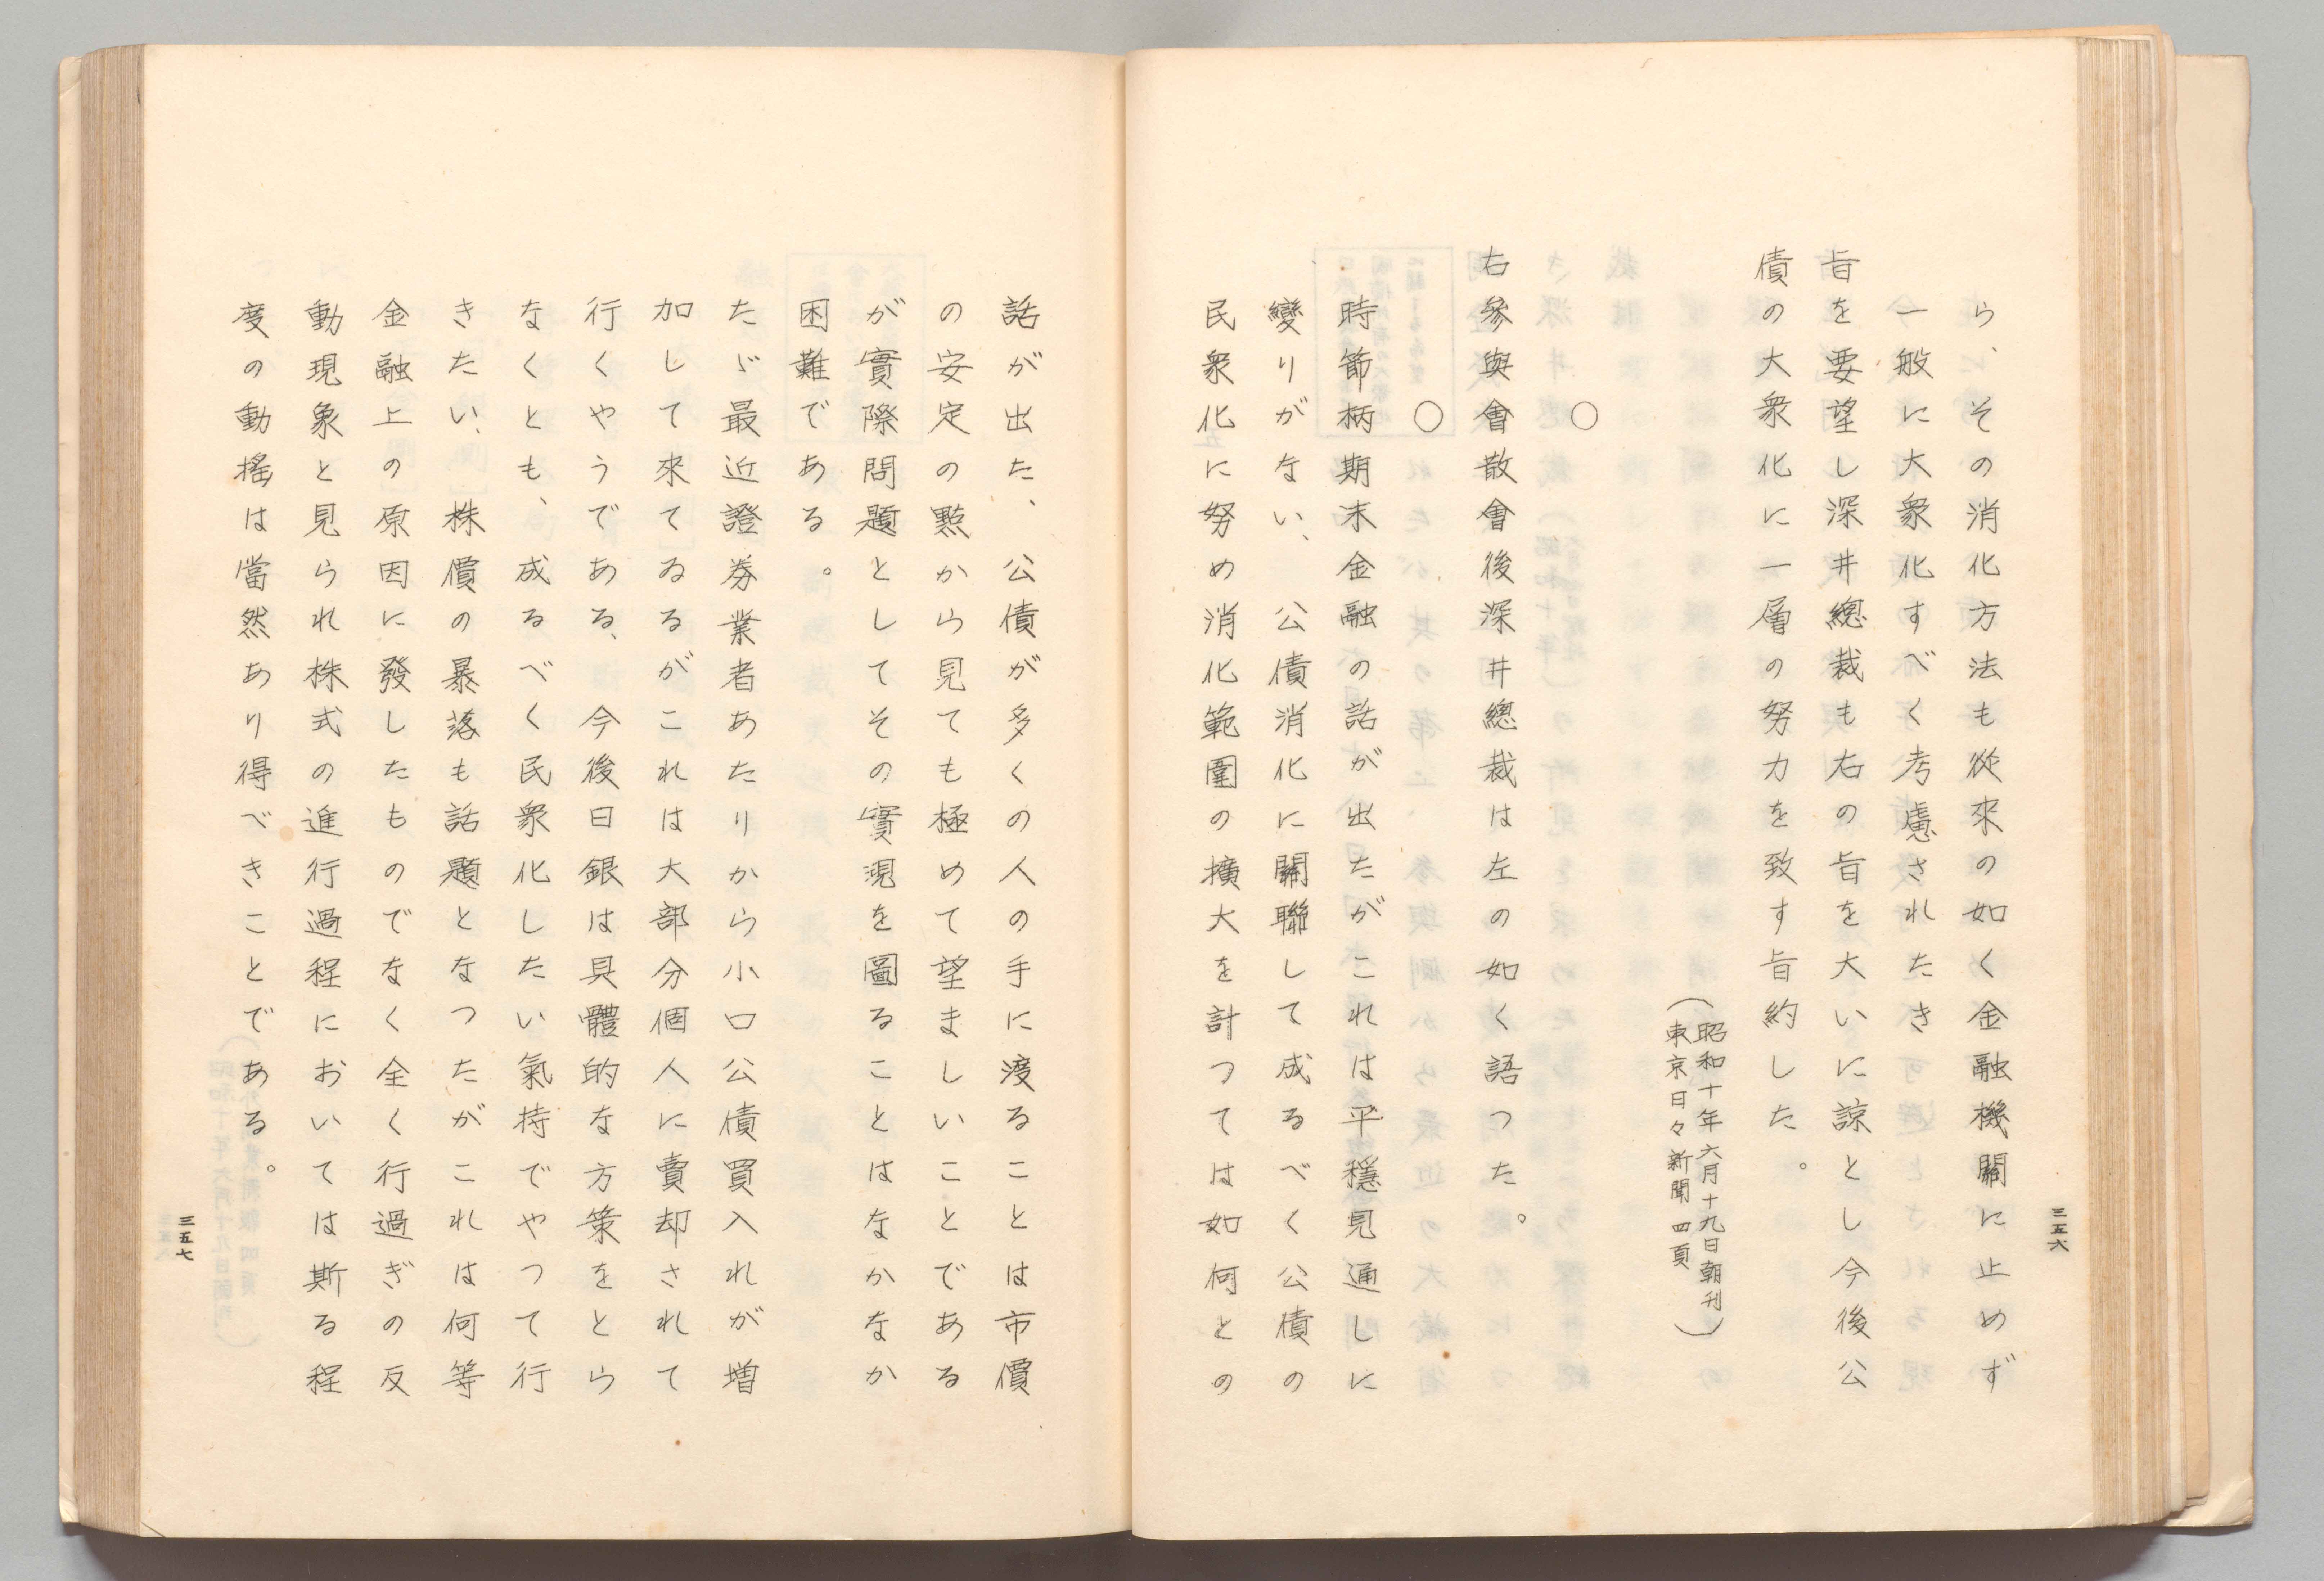 ら、その消化方法も從來の如く金融機關に止めず
一般に大衆化すべく考慮されたき
旨を要望し深井總裁も右の旨を大いに諒とし今後公
債の大衆化に一層の努力を致す旨約した。
（昭和十年六月十九日朝刊
東京日々新聞四頁）
○
右參與會散會後深井總裁は左の如く語つた。
○
時節柄期末金融の話が出たがこれは平穩見通しに
變りがない、公債消化に關聯して成るべく公債の
民衆化に努め消化範圍の擴大を計つては如何との
三五六
話が出た、公債が多くの人の手に渡ることは市價
の安定の點から見ても極めて望ましいことである
が實際問題としてその實現を圖ることはなかなか
困難である。
たゞ最近證券業者あたりから小口公債買入れが増
加して來てゐるがこれは大部分個人に賣却されて
行くやうである、今後日銀は具體的な方策をとら
なくとも、成るべく民衆化したい氣持でやつて行
きたい、株價の暴落も話題となつたがこれは何等
金融上の原因に發したものでなく全く行過ぎの反
動現象と見られ株式の進行過程においては斯る程
度の動搖は當然あり得べきことである。
三五七